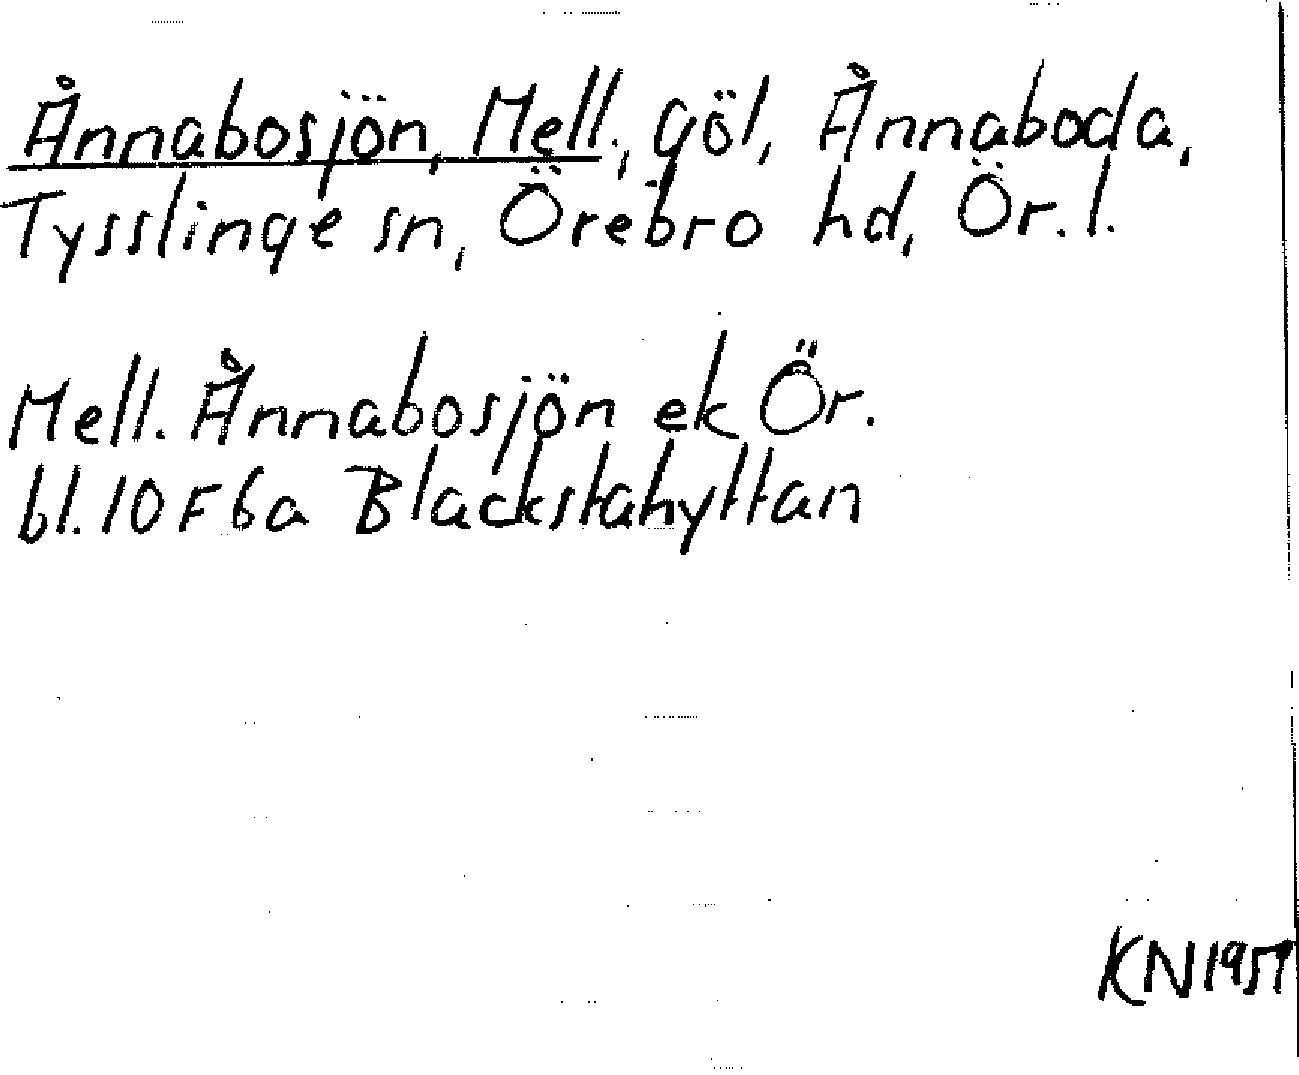 Ånnabosjön, Mell., göl, Ånnaboda,
Tysslinge sn, Örebro hd, Ör. l.
Mell. Ånnabosjön ek Ör.
bl. 10 F 6a Blackstahyttan
KN 1957